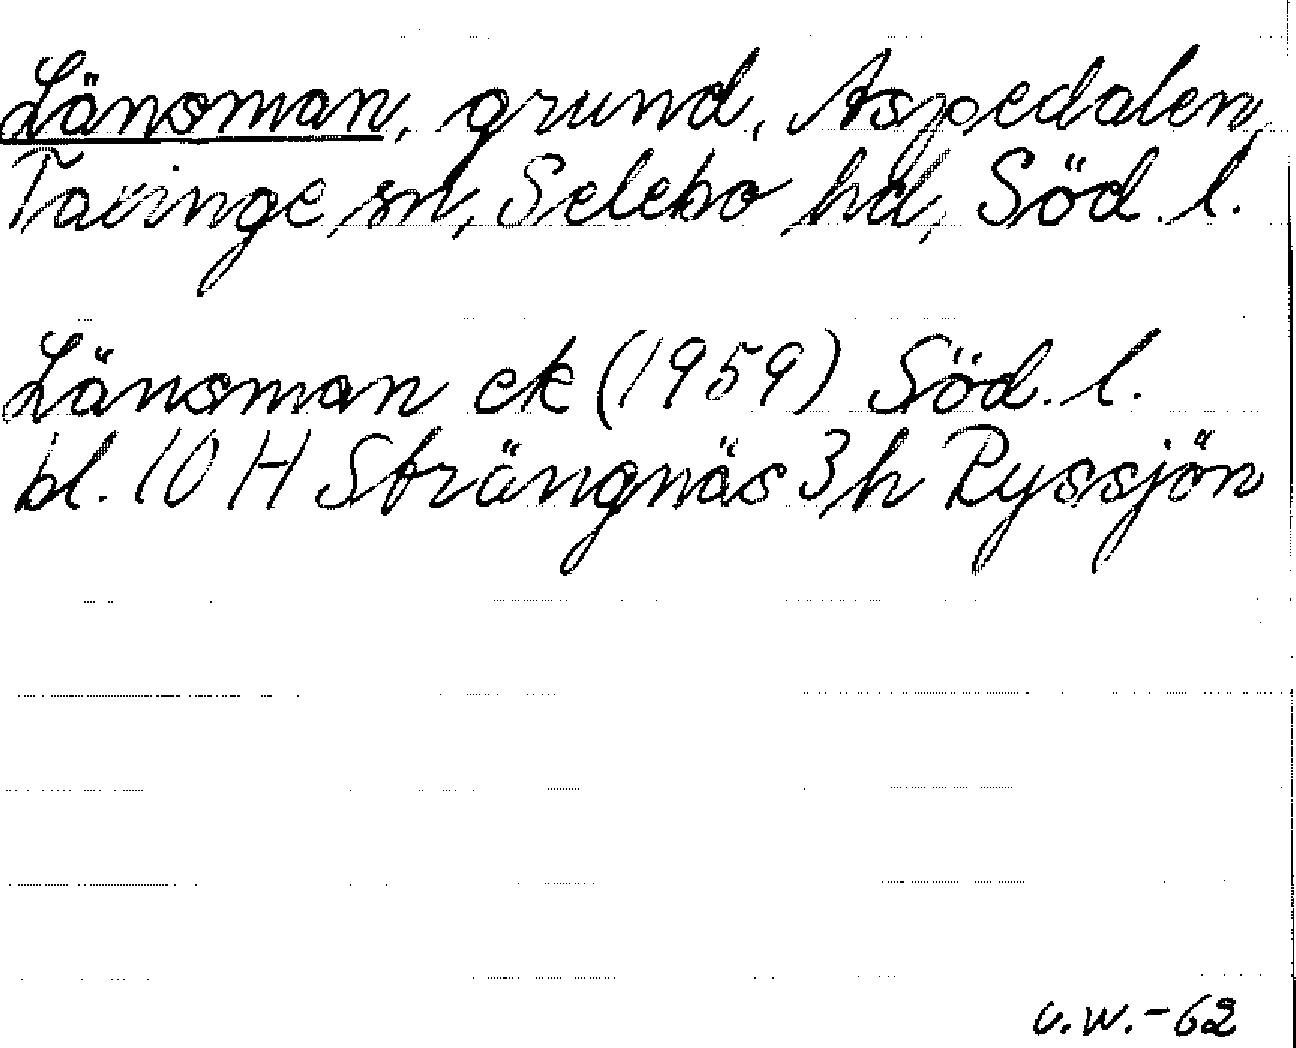 Länsman, grund, Aspedalen,
Taxinge sn, Selebo hd, Söd. l.
Länsman ek (1959) Söd. l.
bl. 10 H Strängnäs 3h Ryssjön
v.w.-62